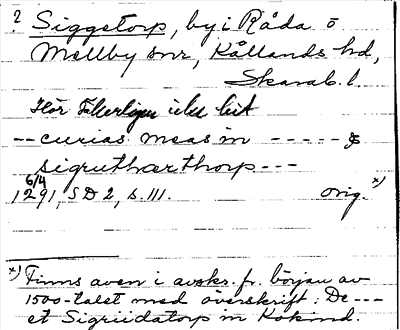 ? Siggetorp, by i Råda o
Mellby snr, Kållands hd,
Skarab. l.
Hör tillerligen icke hit
-- curias meas in ----- &
sigruthærthorp ---
6/4
1291, SD 2, s. 111. orig. x)
x) Finns även i avskr. fr. början av
1500-talet med överskrift: De ---
et Sigriidatorp in Kokind.